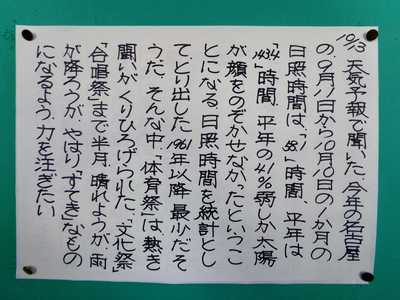 10/13 天気予報で聞いた。今年の名古屋
の、9月11日から10月10日の1か月の
日照時間は、「58.1」時間、平年は
「143.4」時間、平年の41%弱しか太陽
が顔をのぞかせなかったというこ
とになる。日照時間を統計とし
てとり出した1961年以降最少だそ
うだ。そんな中「体育祭」は熱き
闘いがくりひろげられた。「文化祭」
「合唱祭」まで半月、晴れようが、雨
が降ろうが、やはり「すてき」なもの
になるよう、力を注ぎたい